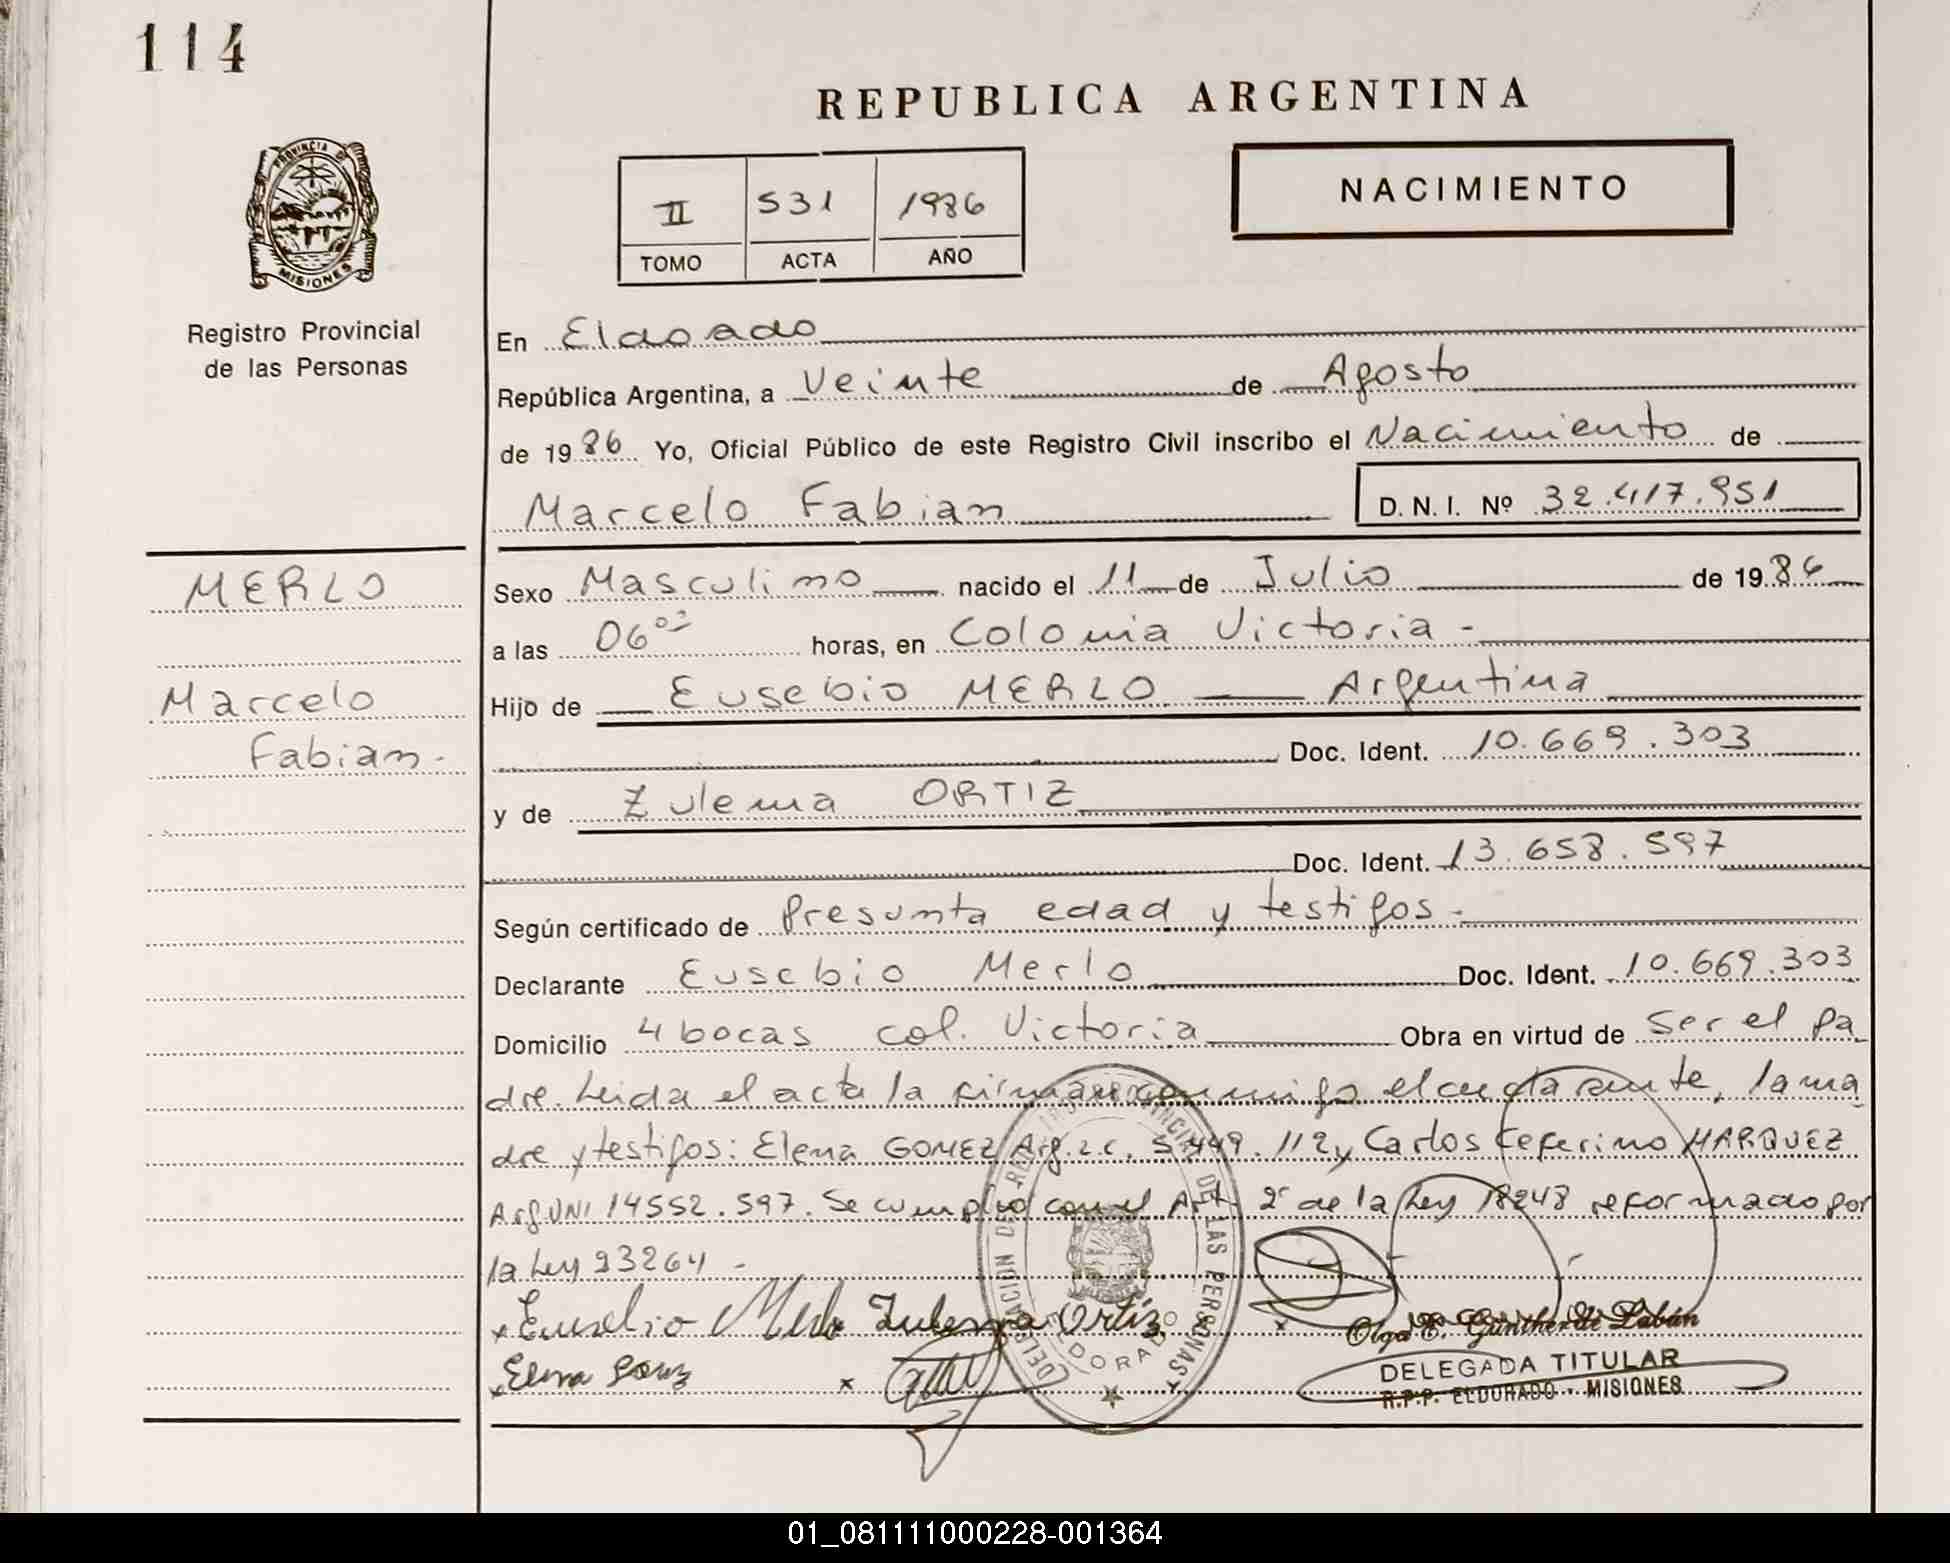 114
REPUBLICA ARGENTINA
PROVINCIA DE
MISIONES
Registro Provincial
de las Personas
II 531 1986
TOMO ACTA AÑO
NACIMIENTO
En Eldorado
República Argentina, a Veinte de Agosto
de 1986 Yo, Oficial Público de este Registro Civil inscribo el Nacimiento de
Marcelo Fabian D. N. I. Nº 32.417.951
MERLO
Marcelo
Fabian.
Sexo Masculino nacido el 11 de Julio de 1986
a las 06 horas, en Colonia Victoria -
Hijo de Eusebio MERLO Argentina
Doc. Ident. 10.669.303
y de Zulema ORTIZ
Doc. Ident. 13.658.597
Según certificado de Presunta edad y testigos -
Declarante Eusebio Merlo Doc. Ident. 10.669.303
Domicilio 4 bocas col. Victoria Obra en virtud de Ser el pa
dre. Leida el acta la firman conmigo el declarante, la ma
dre y testigos: Elena GOMEZ Arg. L.C. 5.449.112 y Carlos Ceferino MARQUEZ
Arg. DNI 14552.597. Se cumplió con el Art. 2º de la Ley 18248 reformado por
la Ley 23264 -
x Eusebio Merlo Zulema Ortiz x
x Elena x
DELEGACION DEL REGISTRO PROVINCIAL DE LAS PERSONAS
ELDORADO
Olga E. Günther de Labán
DELEGADA TITULAR
R.P.P. ELDORADO - MISIONES
01_081111000228-001364